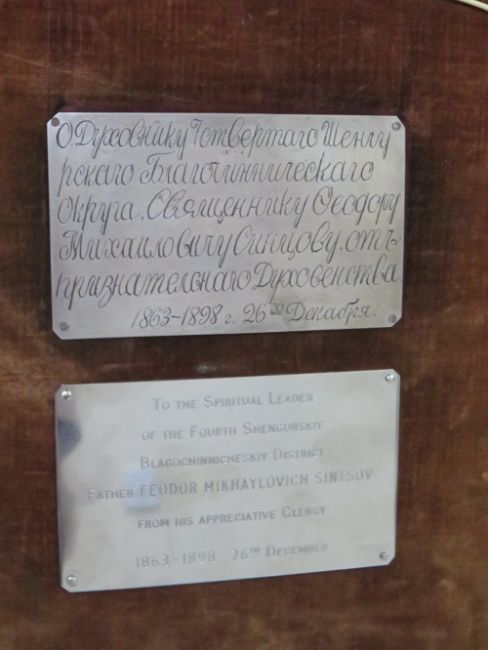 О.Духовнику Четвертаго Шенку
рскаго Благочинническаго
Округа. Священнику Ѳеодору
Михаиловичу Синцову. отъ
признательнаго Духовенства.
1863-1898 г. 26го Декабря.
To the Spiritual Leader
of the Fourth Shengurskiy
Blagochinnicheskiy District
Father FEODOR MIKHAYLOVICH SINTSOV
from his appreciative Clergy
1863-1898 26th December